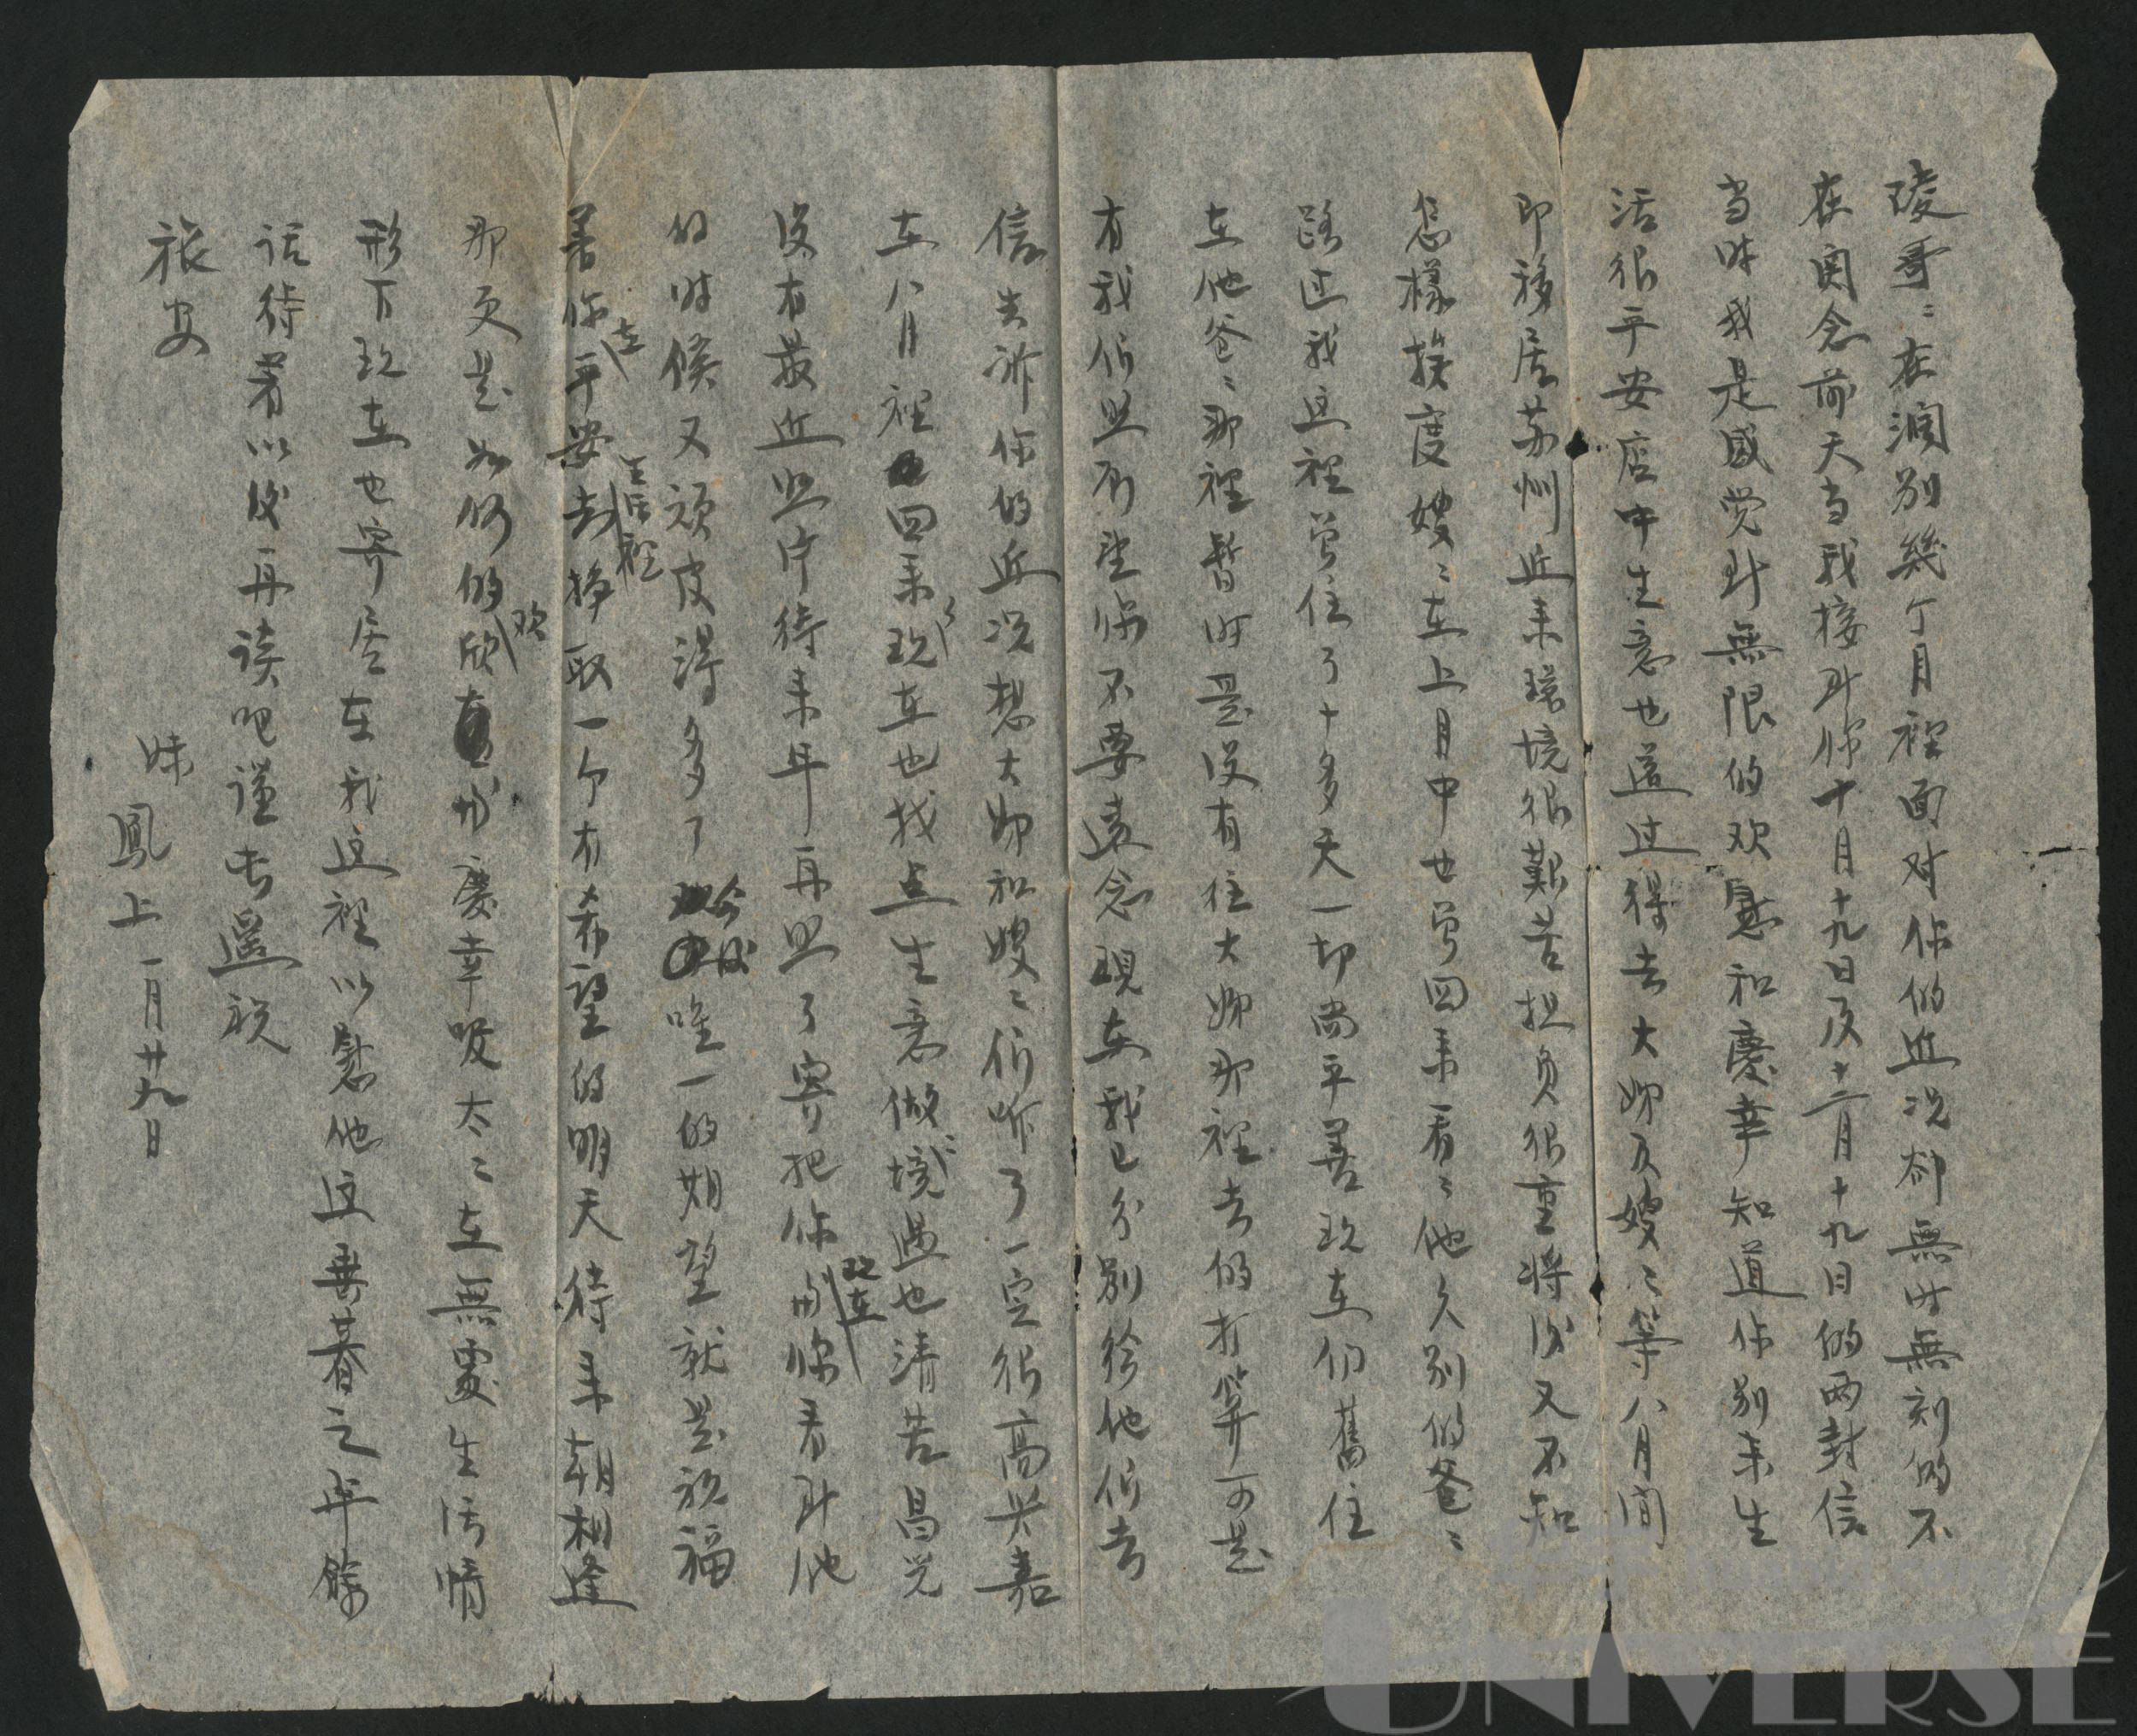 陵哥：在濶别幾个月裡面对你的近况却無时無刻的不
在関念前天当我接到你十月十九日及十二月十九日的两封信
当时我是感觉到無限的欢慰和慶幸知道你别来生
活很平安店中生意也还过得去大姊及嫂〻等八月间
即移居苏州近来環境很艱苦担负很重将以又不知
怎樣挨度嫂〻在上月中也曾回来一看〻他久别的爸〻
路过我这裡曾住了十多天一切尚平善现在仍舊住
在他爸〻那裡暂时是没有往大姊那裡去的打算可是
有我们照所望你不要遠念現在我已分别给他们去
信告訴你的近况想大姊和嫂〻们听了一定很高兴嘉
在八月裡回来了现在也找点生意做〻境遇也清苦昌兄
没有最近照片待来年再照了寄把你现在的你看到他
的时候又顽皮得多了今後唯一的期望就是祝福
着你在平安去生活裡掙取一个有希望的明天待来朝相逢
那更是如何的欣欢和慶幸嗳太〻在無靈生活情
形下现在也寄居在我这裡以慰他这垂暮之年餘
话待着以後再谈吧谨此遥祝
旅安
妹
鳳上一月廿九日
UNIVERSE